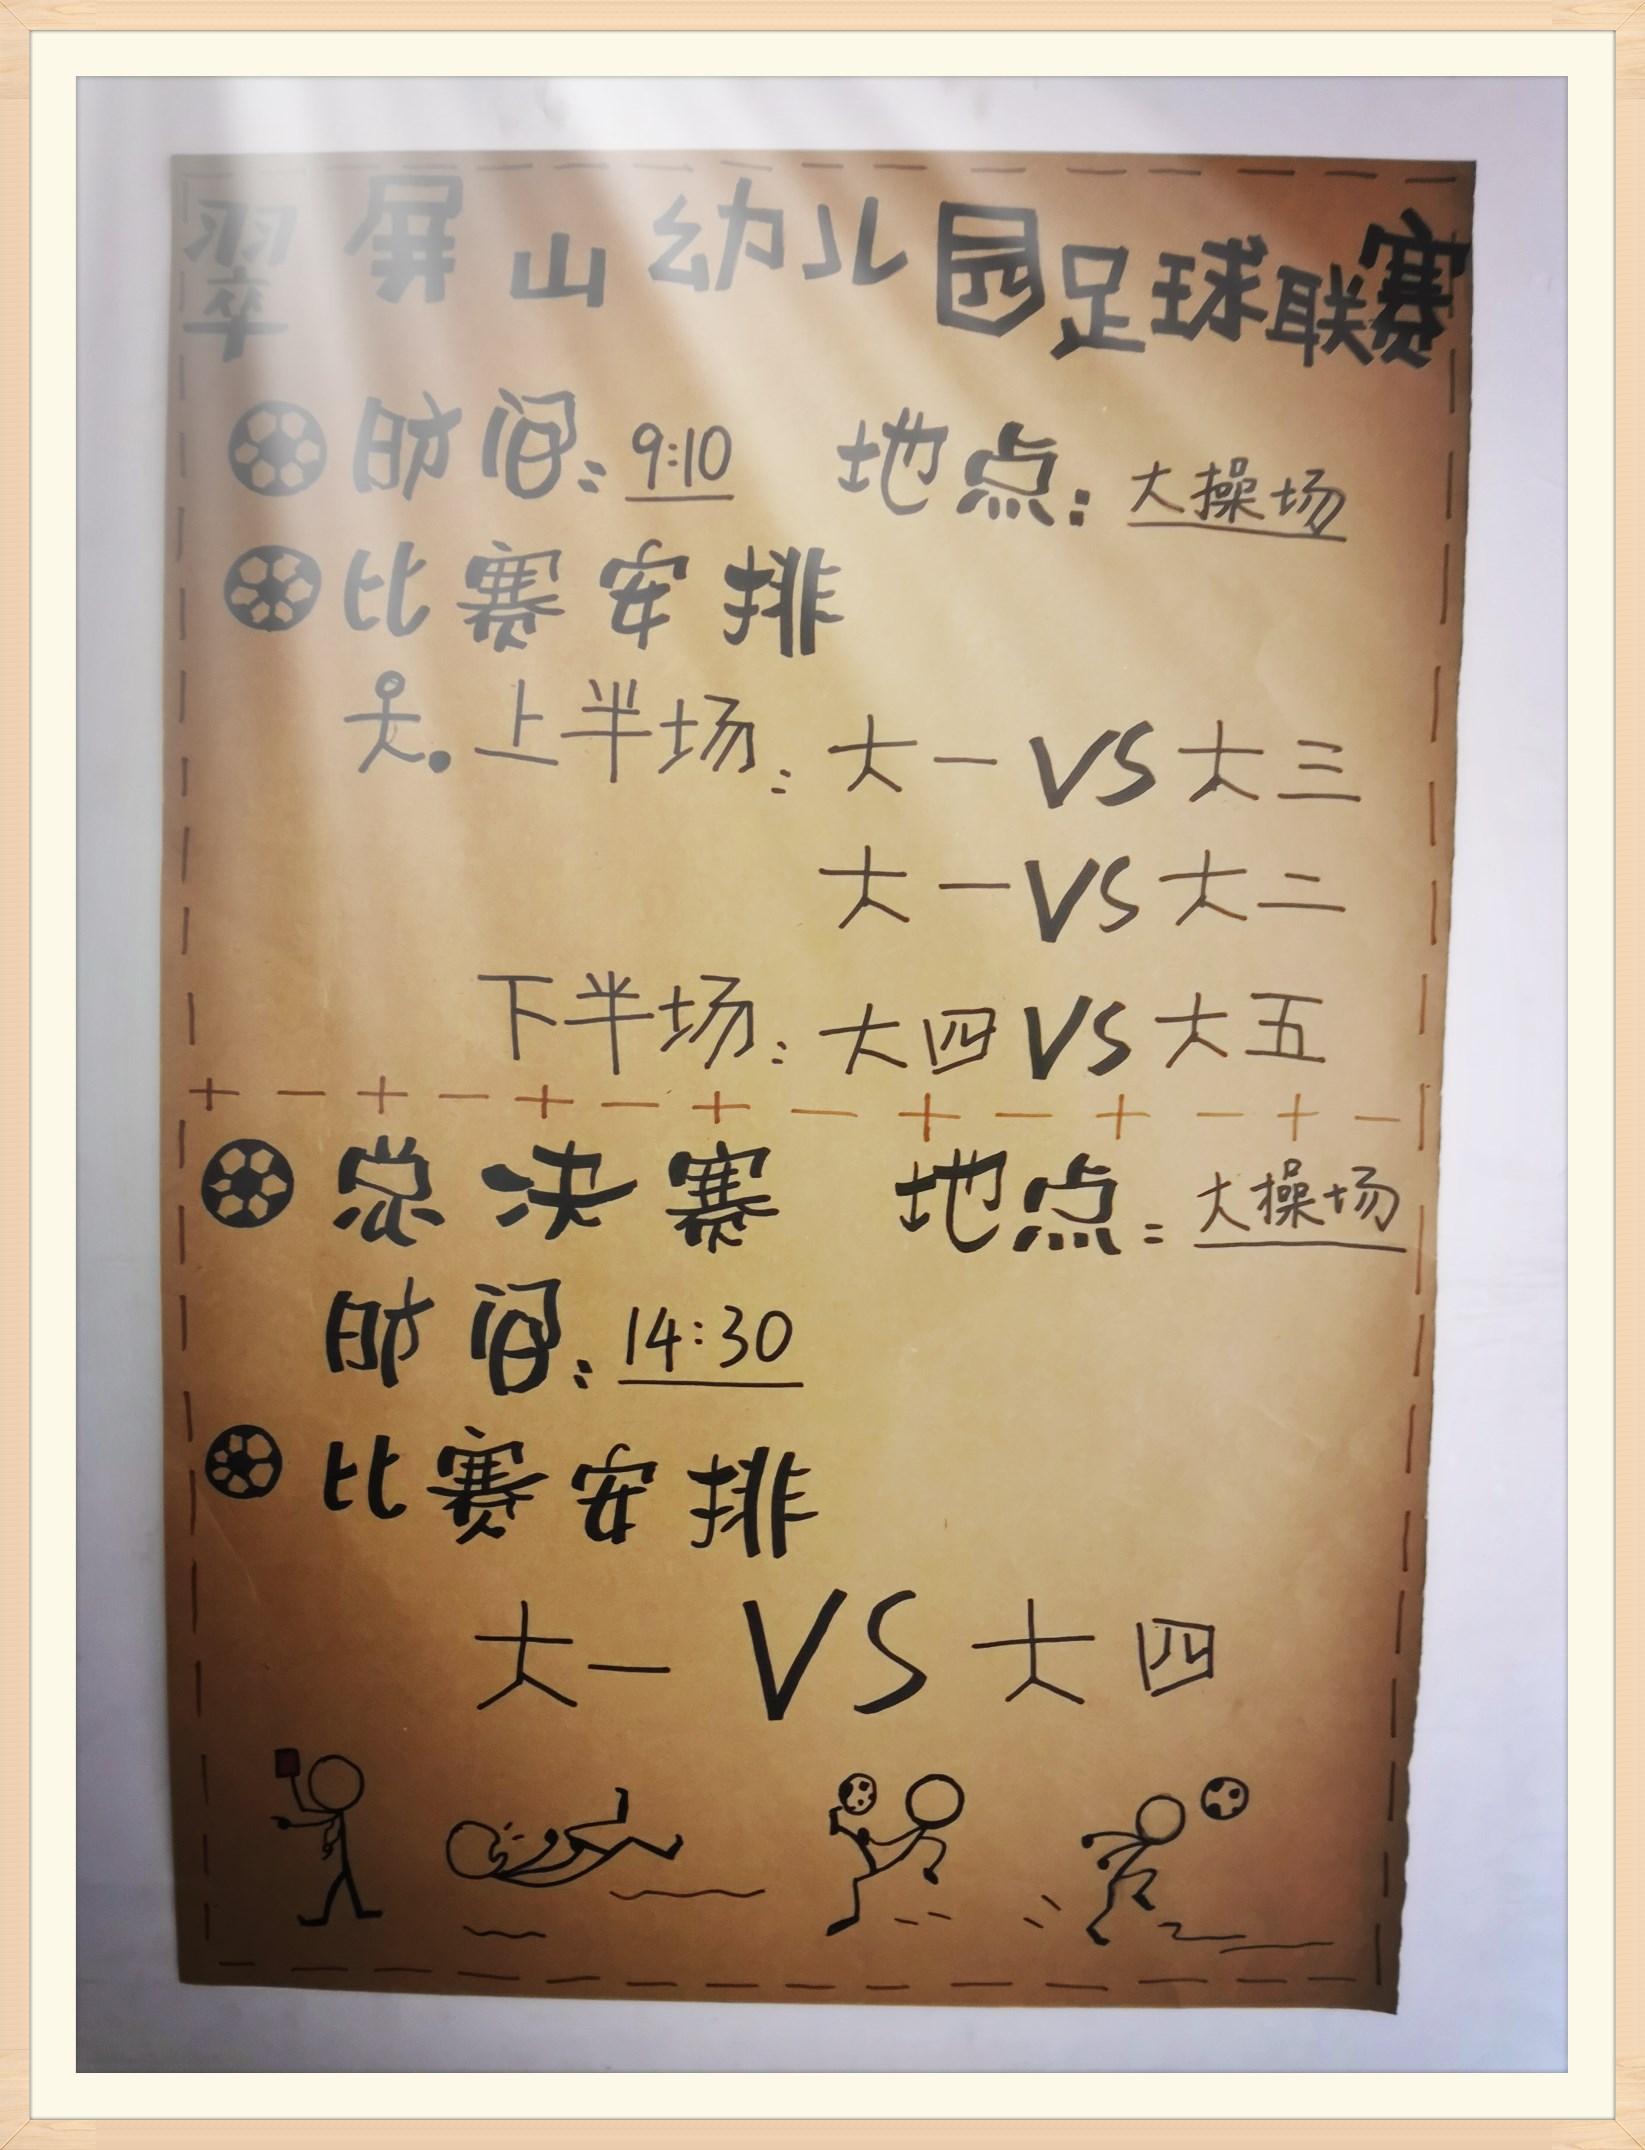 翠屏山幼儿园足球联赛
时间:9:10 地点:大操场
比赛安排
上半场:大一VS大三
大一VS大二
下半场:大四VS大五
总决赛 地点:大操场
时间:14:30
比赛安排
大一VS大四